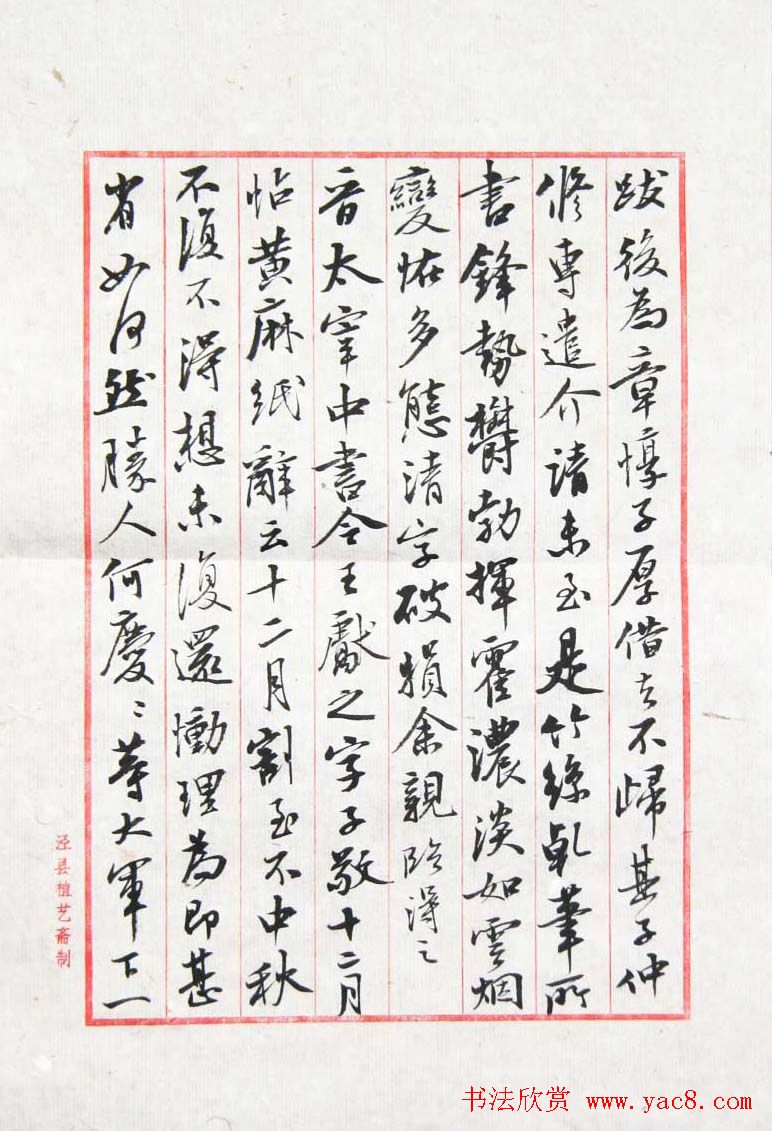 跋後為章惇子厚借去不歸其子仲
修專遣介請未至是竹絲乾筆所
書鋒勢鬱勃揮霍濃淡如雲烟
變怪多態清字破損余親臨得之
晋太宰中書令王獻之字子敬十二月
帖黃麻紙辭云十二月割至不中秋
不復不得想未復還慟理為即甚
省如何然勝人何慶〻等大軍下一
泾县植艺斋制
书法欣赏 www.yac8.com